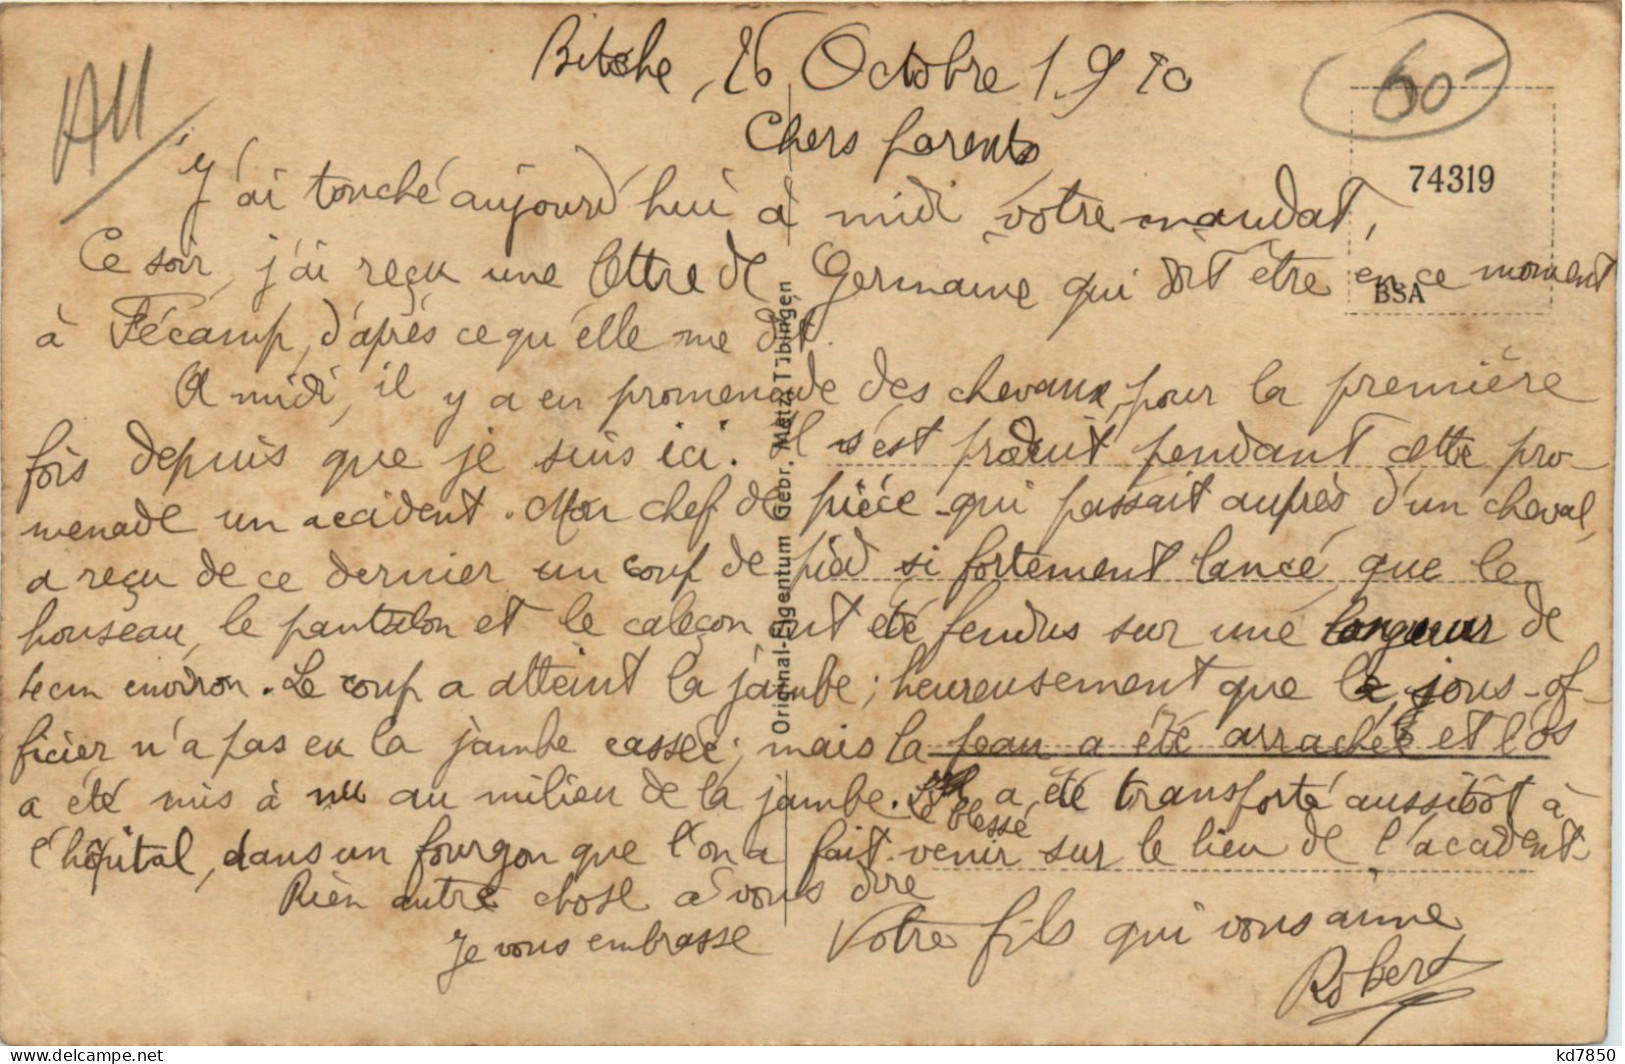 Bitche, 26 Octobre 1910
60-
AU
Chers parents
74319
J'ai touché aujourd'hui à midi votre mandat,
Ce soir, j'ai reçu une lettre de Germaine qui doit être en ce moment
BSA
à Fécamp, d'après ce qu'elle me dit.
A midi, il y a eu promenade des chevaux, pour la première
fois depuis que je suis ici. Il s'est produit pendant cette pro-
menade un accident. Mon chef de pièce qui passait auprès d'un cheval,
a reçu de ce dernier un coup de pied si fortement lancé que le
houseau, le pantalon et le caleçon ont été fendus sur une longueur de
cm environ. Le coup a atteint la jambe; heureusement que le sous-of-
ficier n'a pas eu la jambe cassée; mais la peau a été arrachée et l'os
a été mis à nu au milieu de la jambe. Le blessé a été transporté aussitôt à
l'hôpital, dans un fourgon que l'on a fait venir sur le lieu de l'accident.
Rien autre chose à vous dire
Je vous embrasse Votre fils qui vous aime
Robert
Original-Eigentum Gebr. Metz, Tübingen
kd7850